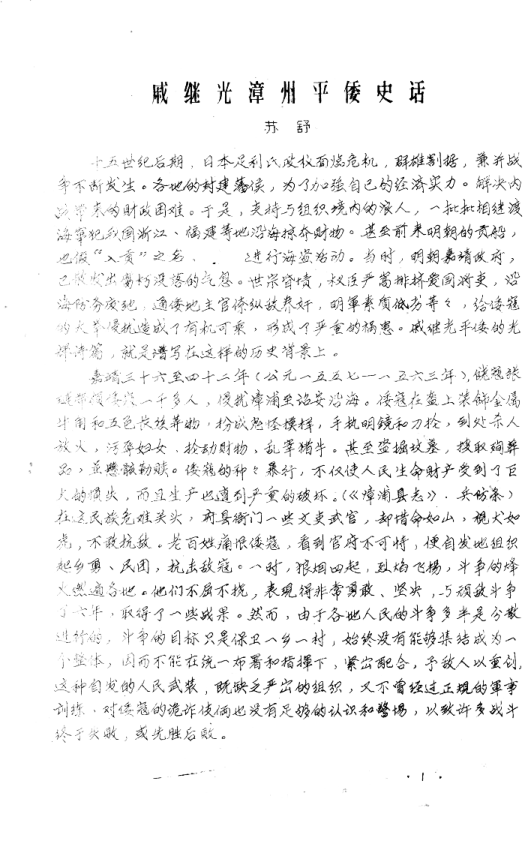 戚继光漳州平倭史话
苏舒
十五世纪后期，日本足利氏政权面临危机，群雄割据，兼并战
争不断发生。各地的封建藩侯，为了加强自己的经济实力。解决内
战带来的财政困难。于是，支持与组织境内的浪人，一批批相继渡
海窜犯我国浙江、福建等地沿海掠夺财物。甚至前来明朝的贡船，
也假“入贡”之名 进行海盗活动。当时，明朝嘉靖政府，
已散发出腐朽没落的气息。世宗昏愦，权臣严嵩排挤爱国将吏，沿
海防务废弛，通倭地主官僚纵敌养奸，明军素质低劣等々，给倭寇
的大举侵扰造成了有机可乘，形成了严重的祸患。戚继光平倭的光
辉诗篇，就是谱写在这样的历史背景上。
嘉靖三十六至四十二年（公元一五五七一一五六三年），倭寇张
一千多人，侵扰漳浦至诏安沿海。倭寇在盔上装饰金属
牛角和五色长丝等物，扮成鬼怪模样，手执明镜和刀枪，到处杀人
放火，污辱妇女、抢劫财物、乱宰猎牛。甚至盗掘坟墓，搜取殉葬
品，并 骸勒赎。倭寇的种々暴行，不仅使人民生命财产受到了巨
大的损失，而且生产也遭到严重的破坏。（《漳浦县志》．兵防条）
在这民族危难关头，府县衙门一些文吏武官，却惜命如山，视犬如
虎，不敢抗敌。老百姓痛恨倭寇，看到官府不可恃，便自发地组织
起乡勇、民团，抗击敌寇。一时，狼烟四起，烈焰飞扬，斗争的烽
火燃遍各地。他们不屈不挠，表现得非常勇敢、坚决，与顽敌斗争
了六年，取得了一些战果。然而，由于各地人民的斗争多半是分散
进行的，斗争的目标只是保卫一乡一村，始终没有能够集结成为一
个整体，因而不能在统一布署和指挥下，紧密配合，予敌人以重创，
这种自发的人民武装，既缺乏严密的组织，又不曾经过正规的军事
训练．对倭寇的诡诈伎俩也没有足够的认识和警惕，以致许多战斗
终于失败，或先胜后败。
·1·